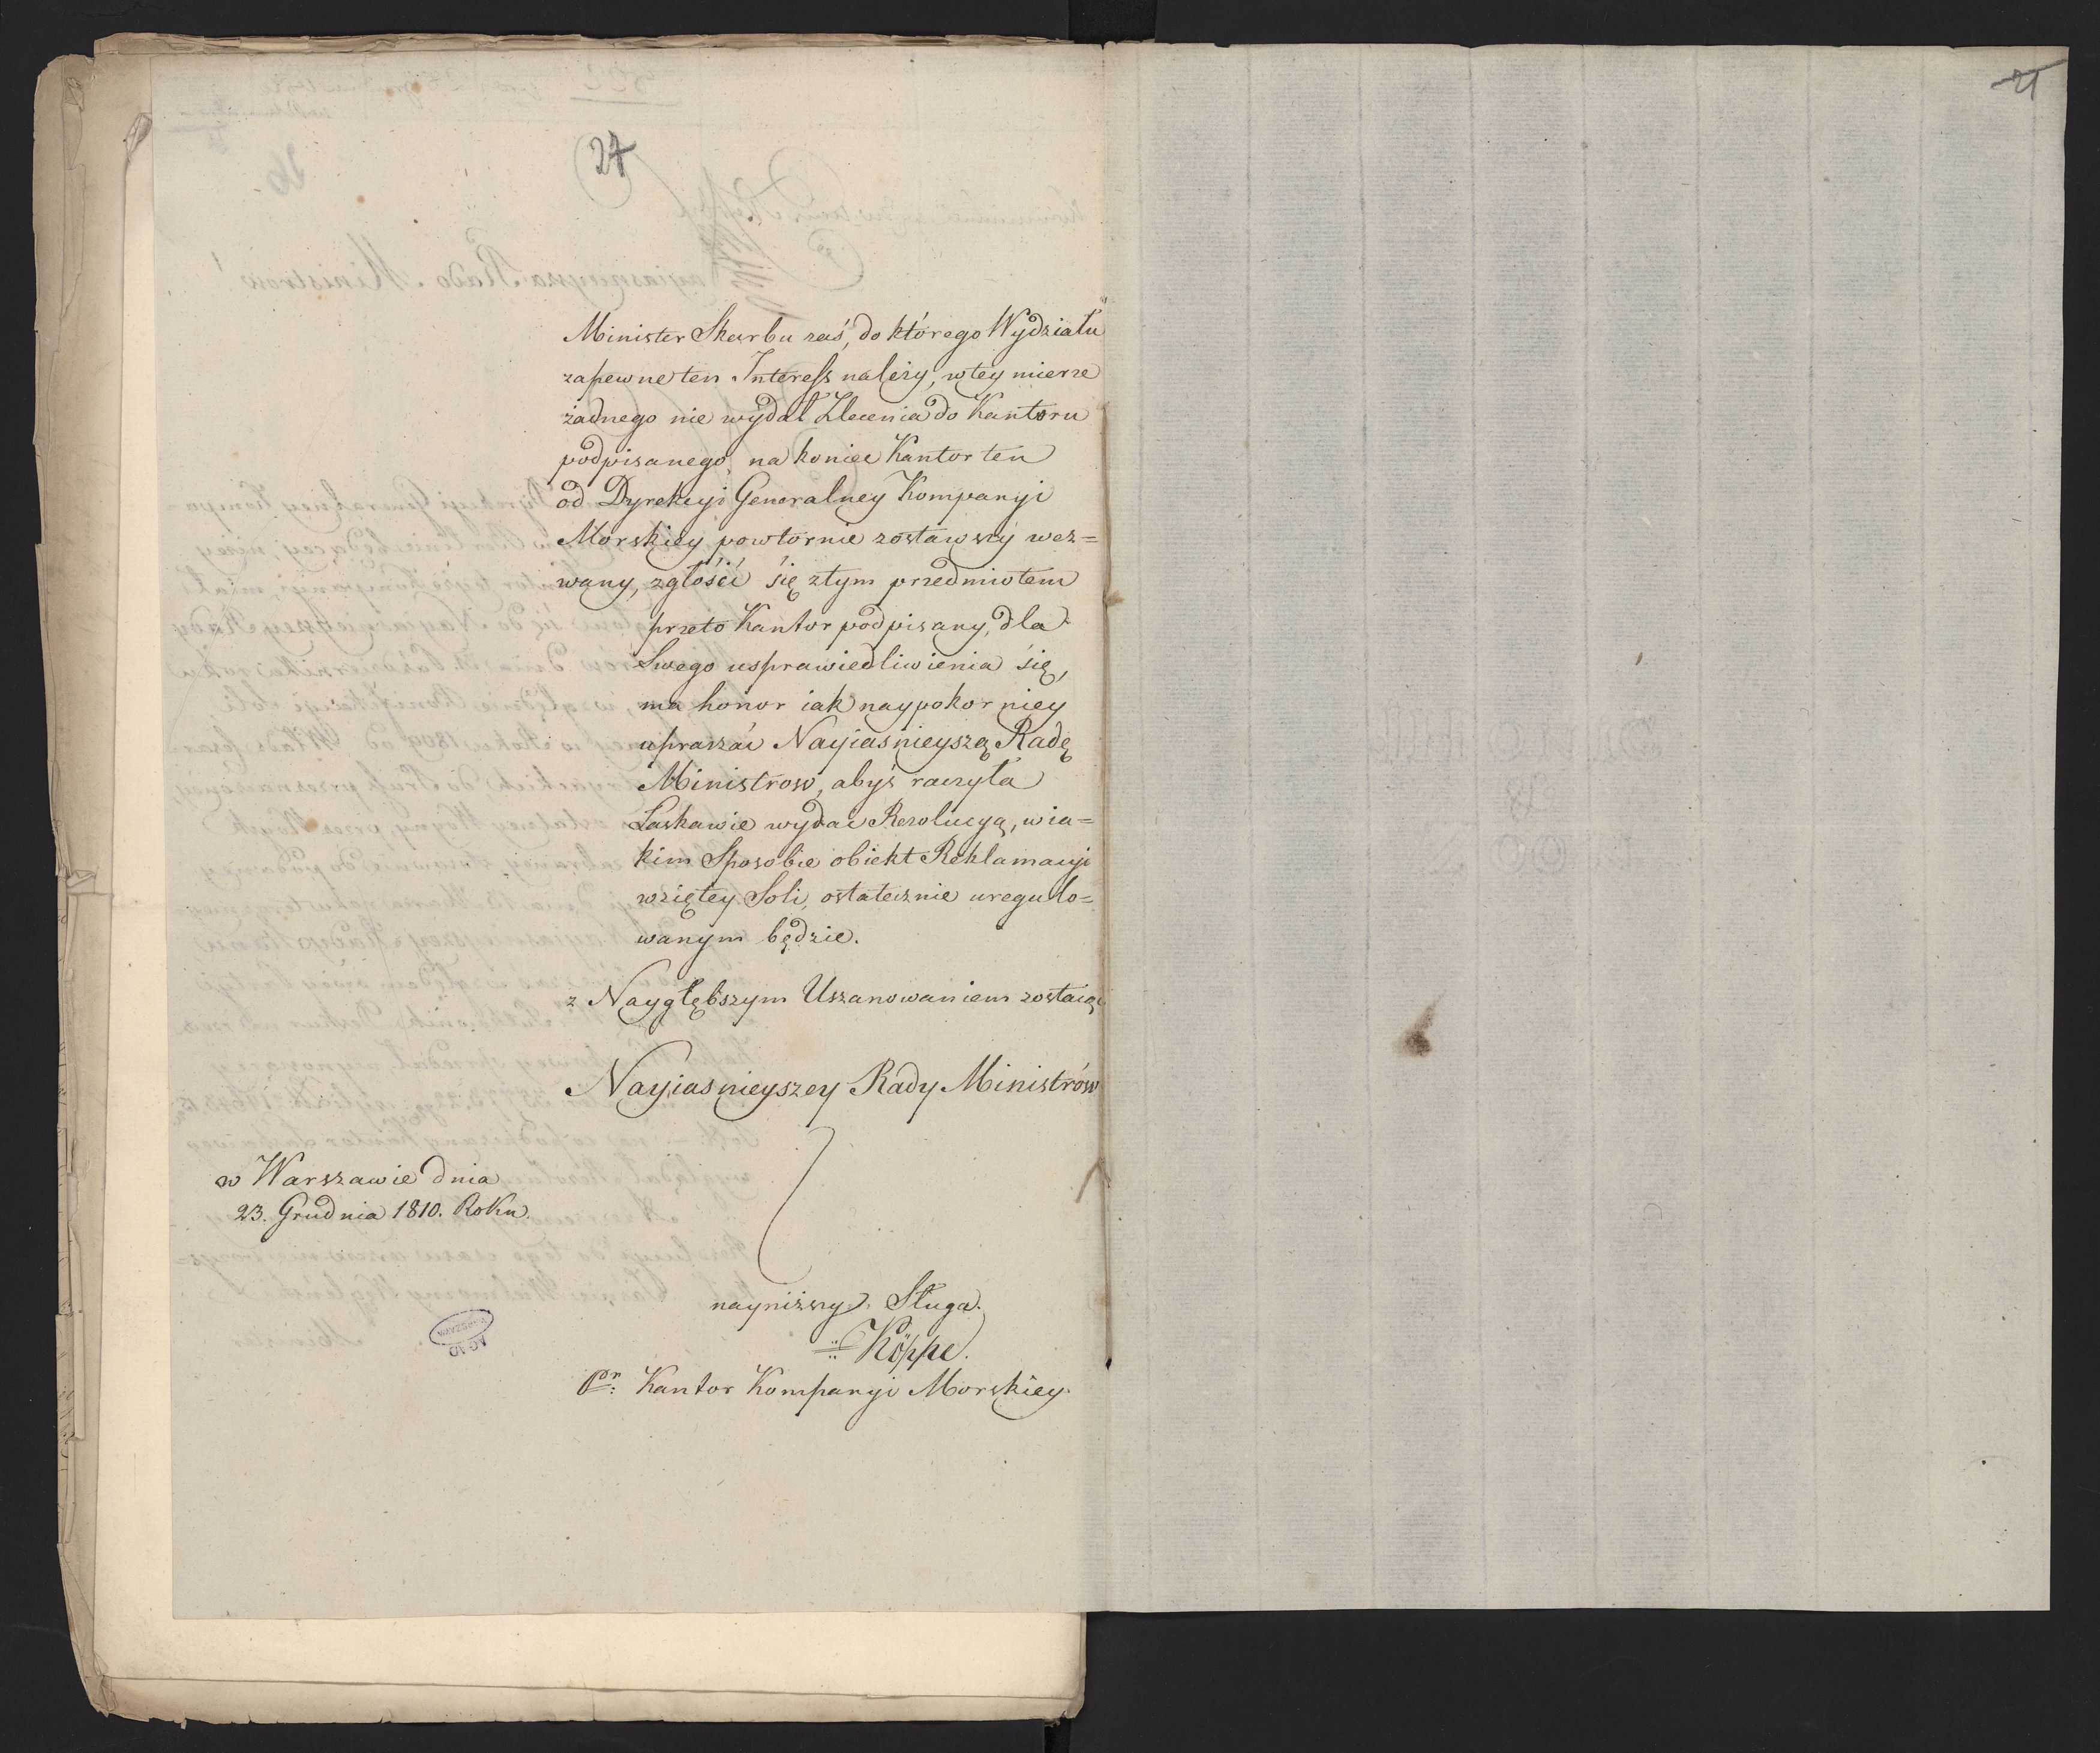 27
21
Minister Skarbu zaś, do którego Wydziału
zapewne ten Interess należy, w tey mierze
żadnego nie wydał Zlecenia do Kantoru
podpisanego, na koniec Kantor ten
od Dyrekcyi Generalney Kompanyi
Morskiey powtórnie zostawszy wez=
wany, zgłośić się z tym przedmiotem
przeto Kantor podpisany, dla
Swego usprawiedliwienia się,
ma honor iak naypokorniey
upraszać Nayiasnieyszą Radę
Ministrow, abyś raczyła
Łaskawie wydać Rezolucyą, w ia=
kim Sposobie obiekt Reklamacyi
wziętey Soli, ostatecznie uregulo=
wanym będzie.
z Naygłębszym Uszanowaniem zostaiąc
Nayiasnieyszey Rady Ministrów
w Warszawie dnia
23. Grudnia 1810. Roku.
nayniższy Sługa.
Köppe.
Pr: Kantor Kompanyi Morskiey.
AGAD
WARSZAWA